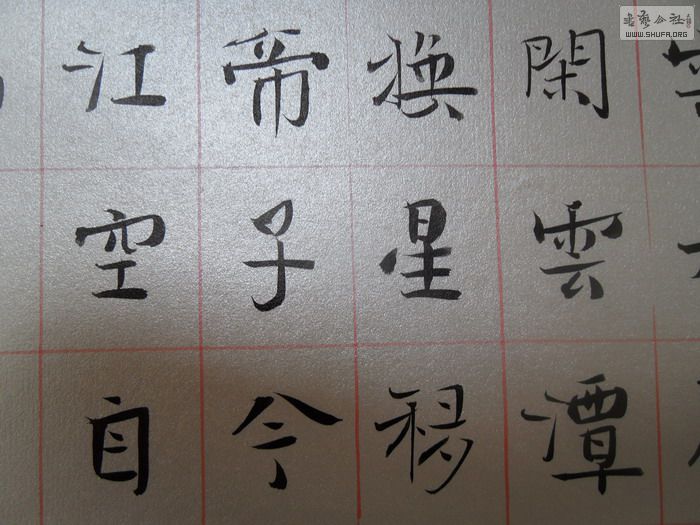 閑雲潭
換星移
帝子今
江空自
書藝公社
WWW.SHUFA.ORG